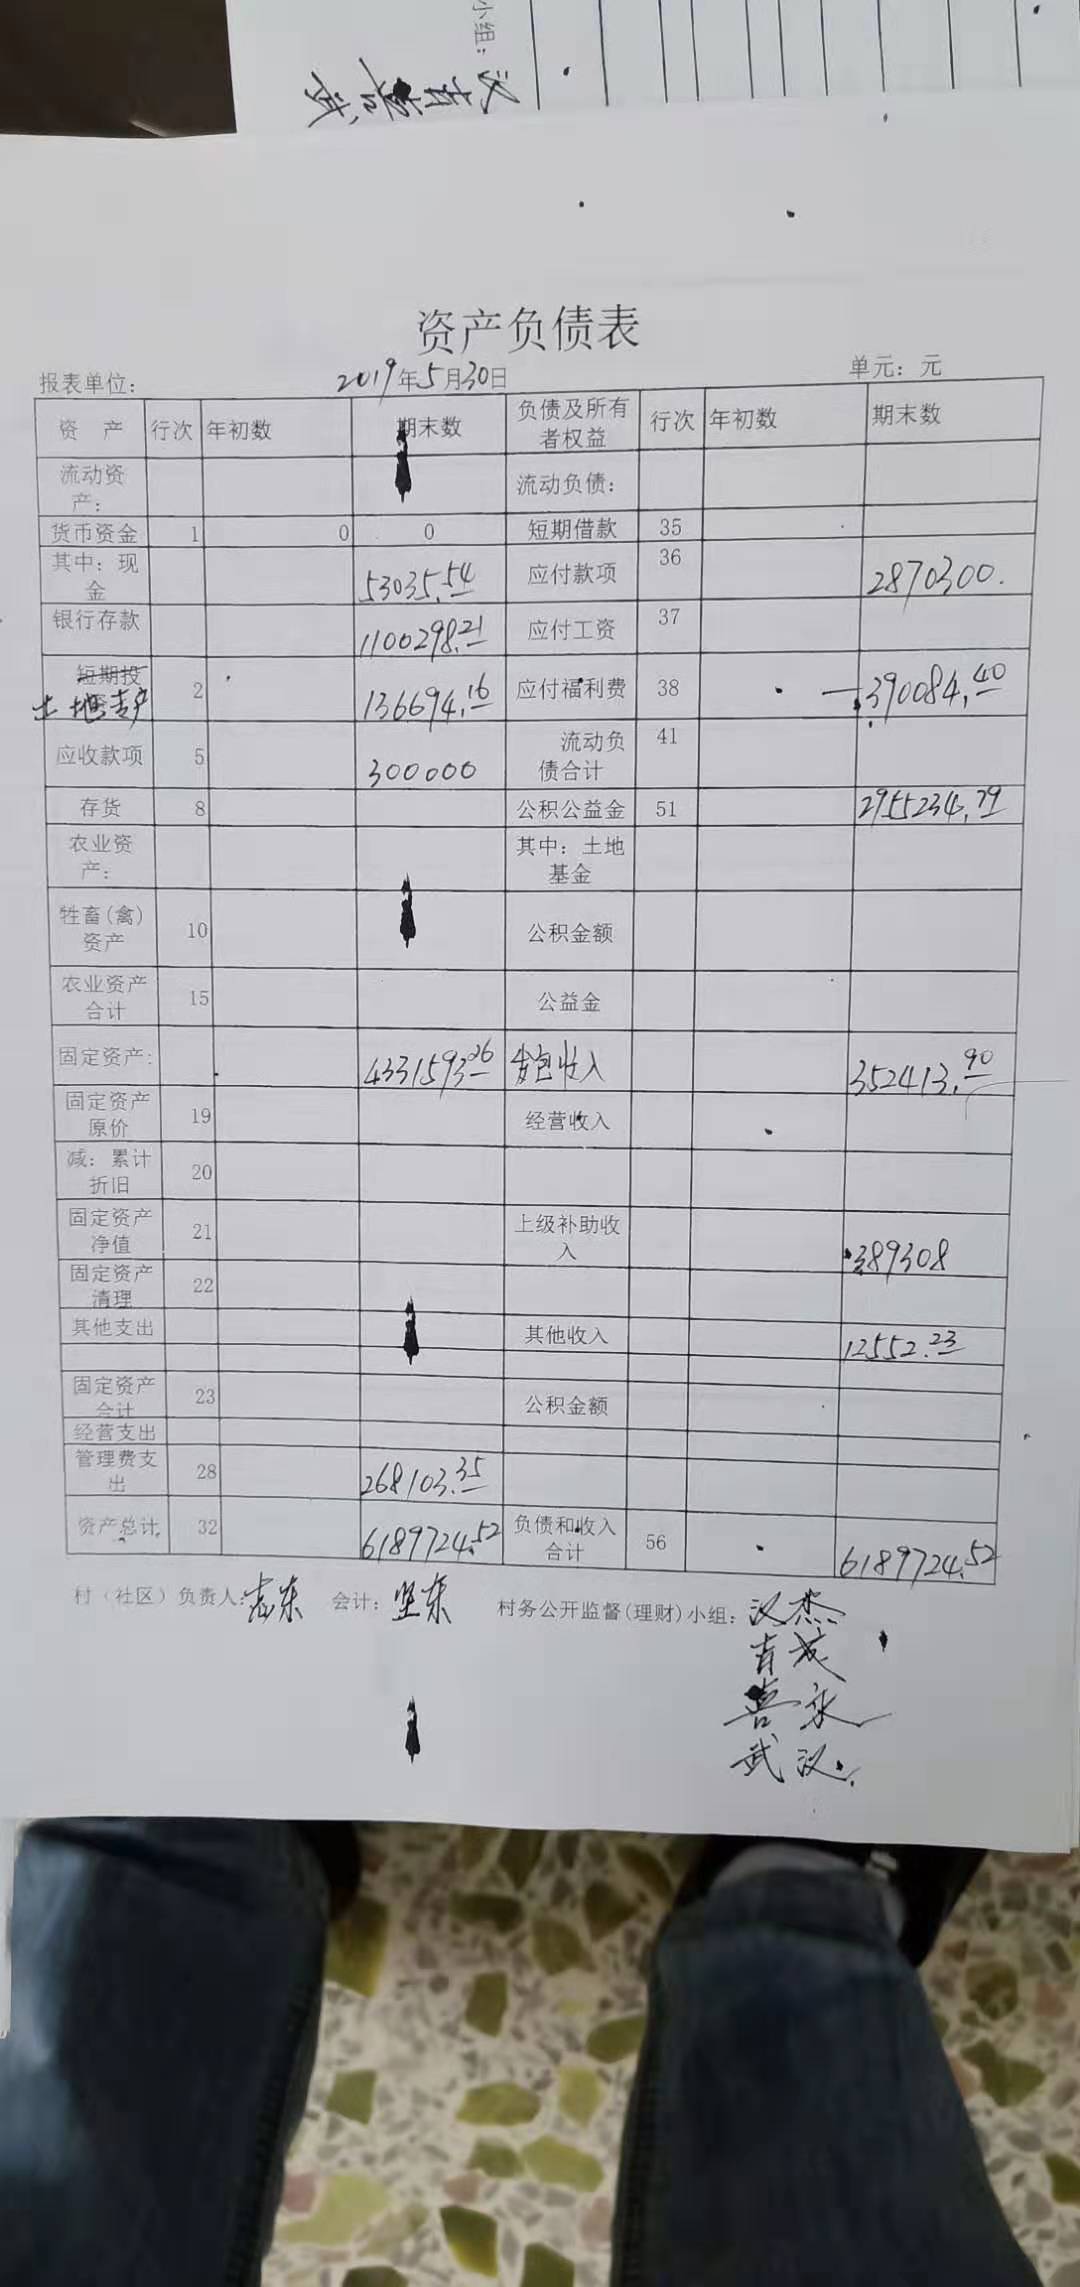 小组：
汉吉喜武
资产负债表
报表单位： 2019年5月30日 单元：元
资 产 行次 年初数 期末数 负债及所有者权益 行次 年初数 期末数
流动资产： 流动负债：
货币资金 1 0 0 短期借款 35
其中：现金 53035.54 应付款项 36 2870300.
银行存款 1100298.21 应付工资 37
短期投资 土地专户 2 136694.16 应付福利费 38 —390084.40
应收款项 5 300000 流动负债合计 41
存货 8 公积公益金 51 2955234.79
农业资产： 其中：土地基金
牲畜(禽)资产 10 公积金额
农业资产合计 15 公益金
固定资产: 4331593.26 发包收入 352413.90
固定资产原价 19 经营收入
减：累计折旧 20
固定资产净值 21 上级补助收入 389308
固定资产清理 22
其他支出 其他收入 12552.23
固定资产合计 23 公积金额
经营支出
管理费支出 28 268103.35
资产总计 32 6189724.52 负债和收入合计 56 6189724.52
村（社区）负责人: 志东 会计: 坚东 村务公开监督(理财)小组: 汉杰
吉成
喜永
武汉